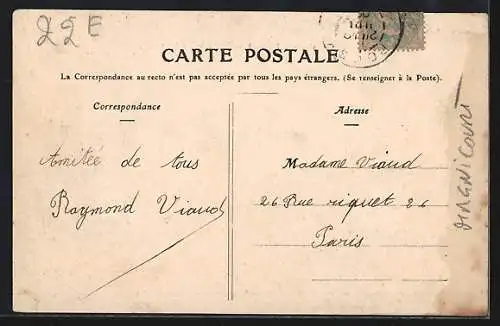 22 E
CARTE POSTALE
La Correspondance au recto n'est pas acceptée par tous les pays étrangers. (Se renseigner à la Poste).
Correspondance
Amitée de tous
Raymond Viaud
Adresse
Madame Viaud
26 Rue riquet 26
Paris